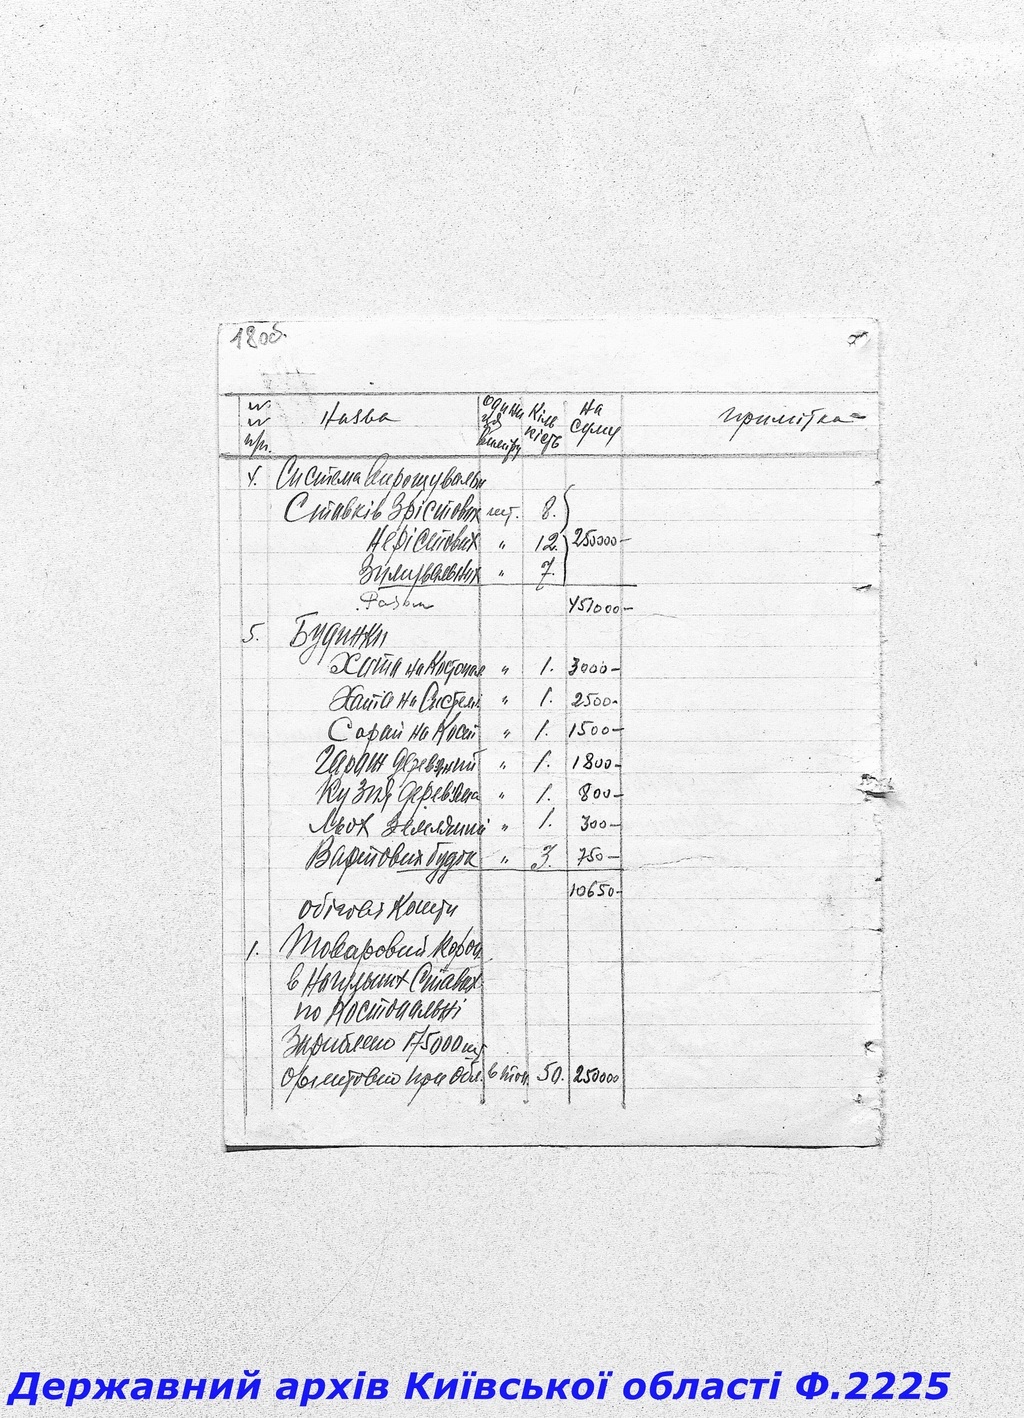 180б.
№
№
п/п.
Назва
Одини
ця
виміру
Кіль
кість
На
суму
Примітка
4. Система вирощувальн
Ставків Зрістових шт. 8.
Нерістових " 12. 250000-
Зимувальних " 7.
Разом 451000-
5. Будинки
Хата на Костопал " 1. 3000-
Хата на Системі " 1. 2500-
Сарай на Кост " 1. 1500-
Гараж деревяний " 1. 1800-
Кузня деревяна " 1. 800-
Льох земляний " 1. 300-
Вартових будок " 3. 750-
10650-
Обігові Кошти
1. Товаровий Короп
в Нагульних Ставах
по Костопальні
Зариблено 175000 шт
Орієнтовно при обл. в тон. 50. 250000
Державний архів Київської області Ф.2225